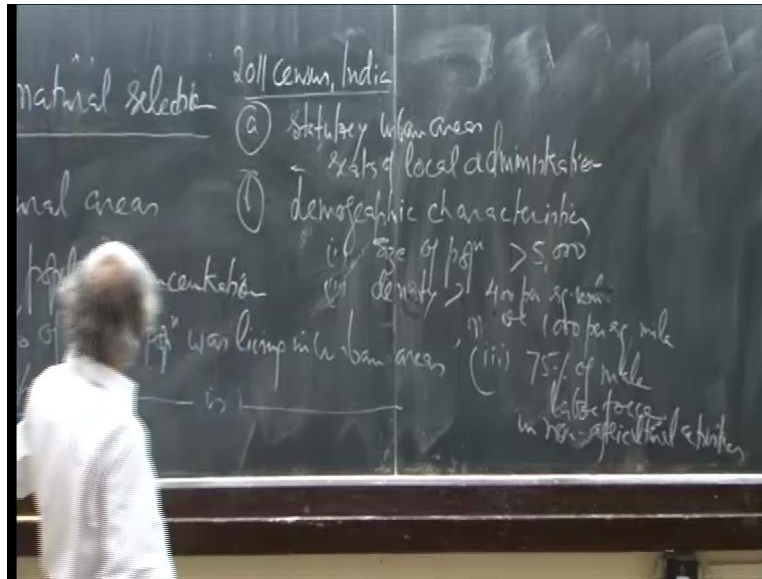 natural selection
areas
was living in urban areas
is
2011 census, India
(a) statutory urban areas
- seats of local administration
(b) demographic characteristics
(i) size of popn > 5,000
(ii) density > 400 per sq.
or 1000 per sq mile
(iii) 75% of male
labor force
in non-agricultural activities